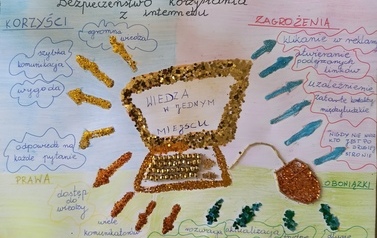 Bezpieczeństwo korzystania
z internetu
KORZYŚCI
ZAGROŻENIA
ogromna
wiedza
szybka
komunikacja
wygoda
odpowiedź na
każde pytanie
WIEDZA
W JEDNYM
MIEJSCU
klikanie w reklamy
otwieranie
podejrzanych
linków
uzależnienie
zabawne kontakty
międzyludzkie
NIGDY NIE WIESZ
KTO JEST PO
DRUGIEJ
STRONIE
PRAWA
OBOWIĄZKI
dostęp
do
wiedzy
wiele
komunikatorów
aktualizacja